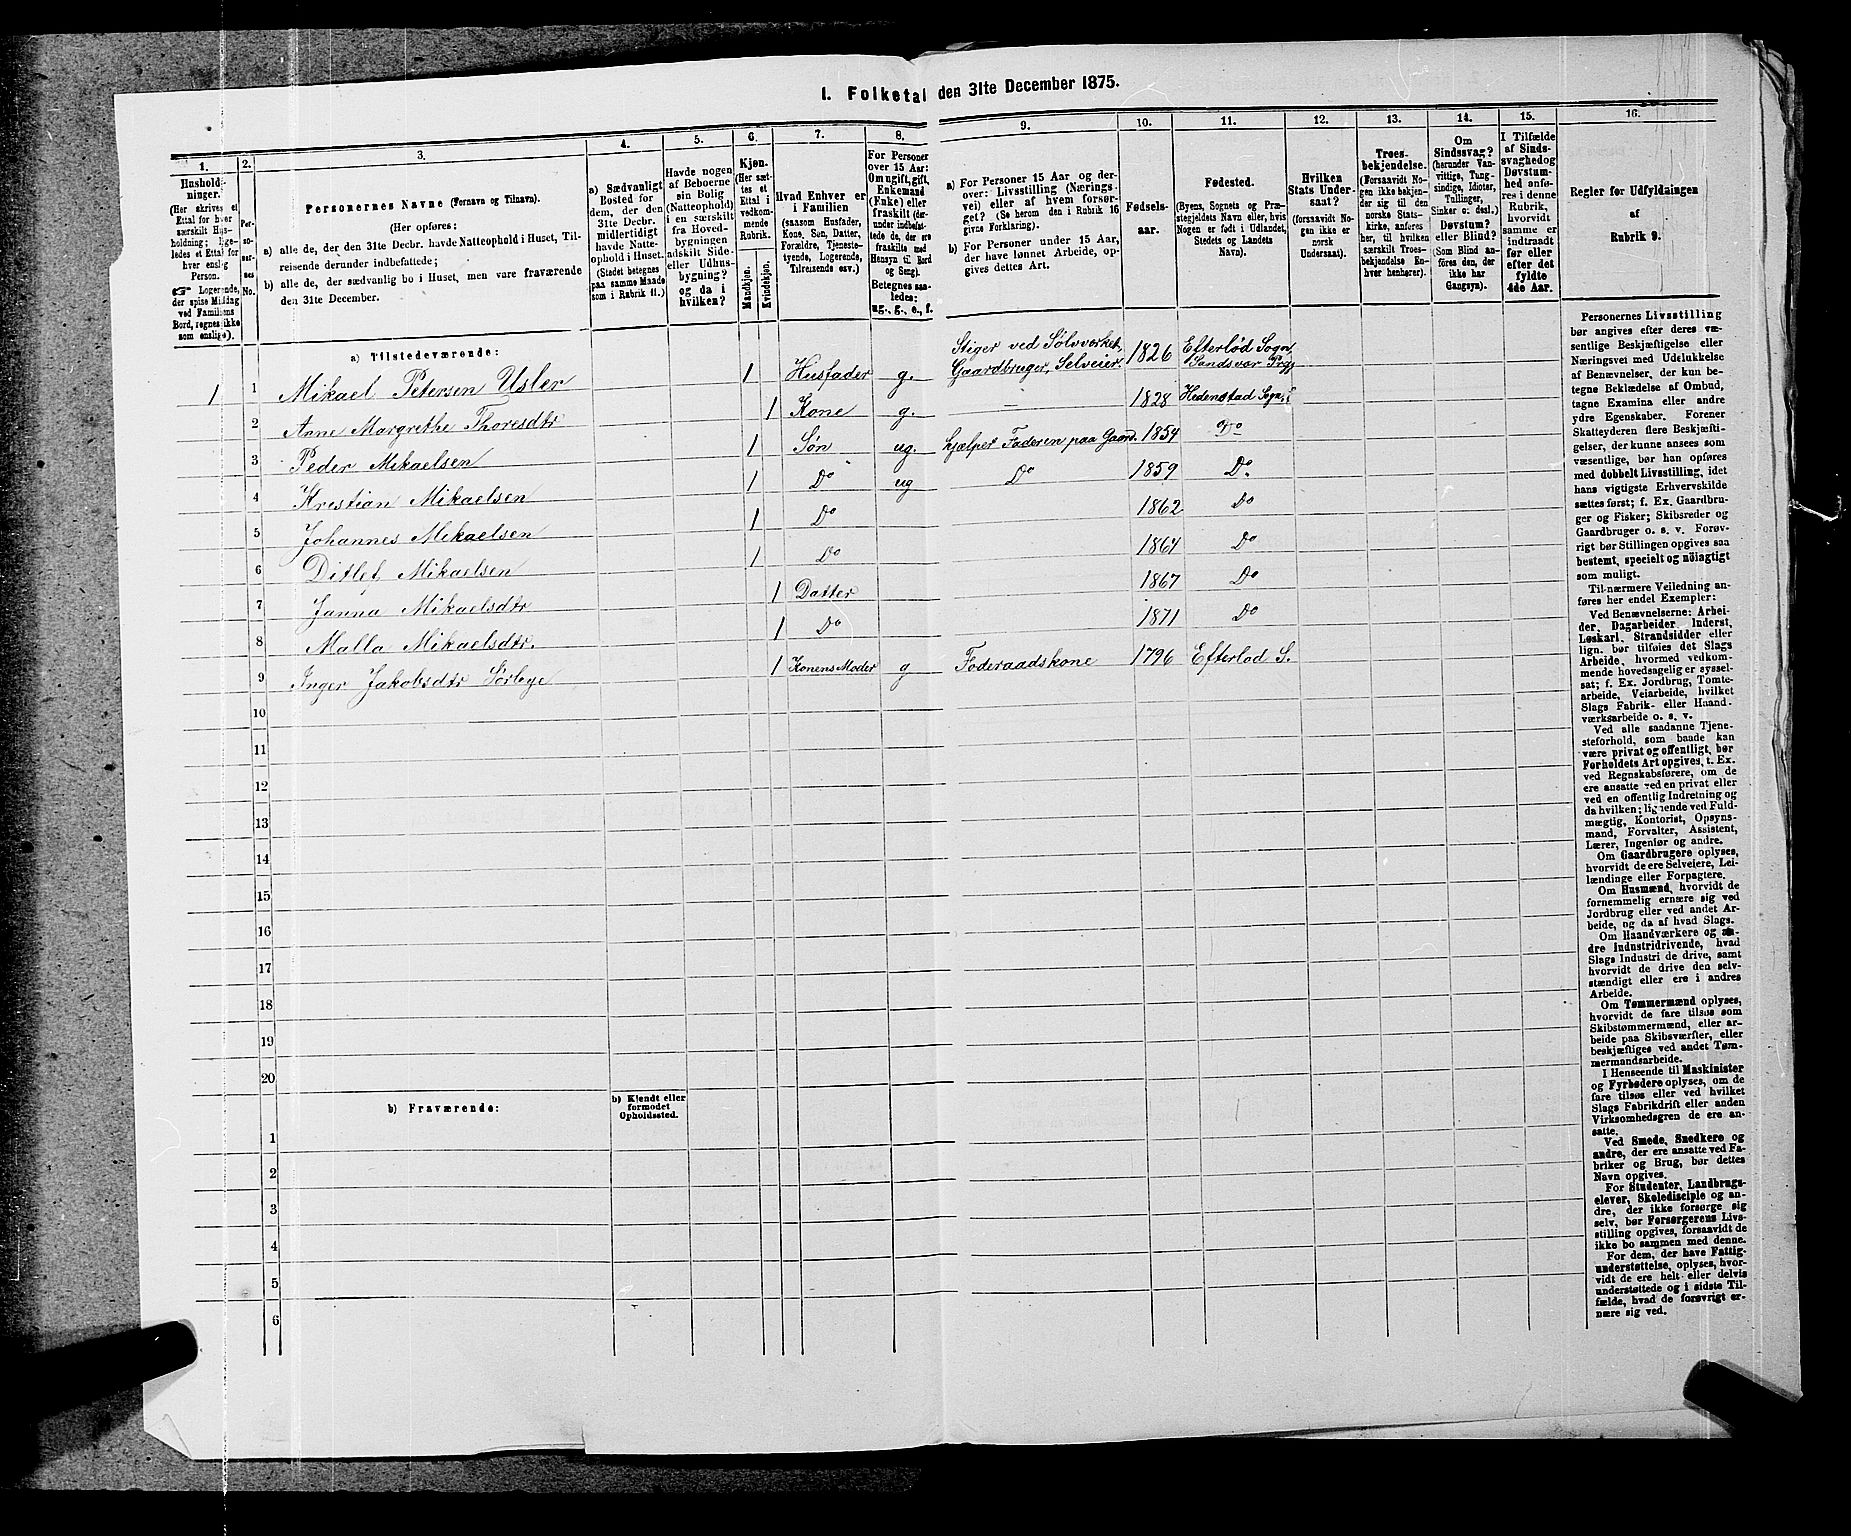 I. Folketal den 31te December 1875.
1.
Husholdninger.
(Her skrives et
Ettal for hver
særskilt Husholdning;
ligeledes et Ettal for
hver enslig
Person.
Logerende,
der spise Middag
ved Familiens
Bord, regnes ikke
som enslige).
2.
Personernes
No.
3.
Personernes Navne (Fornavn og Tilnavn).
(Her opføres:
a) alle de, der den 31te Decbr. havde Natteophold i Huset, Tilreisende derunder indbefattede;
b) alle de, der sædvanlig bo i Huset, men vare fraværende
den 31te December.
4.
a) Sædvanligt
Bosted for
dem, der den
31te Decbr.
midlertidigt
havde Natteophold i Huset.
(Stedet betegnes
paa samme Maade
som i Rubrik 11.)
5.
Havde nogen
af Beboerne
sin Bolig
(Natteophold)
i en særskilt
fra Hovedbygningen
adskilt Side-
eller Udhusbygning?
og da i
hvilken?
6.
Kjøn.
(Her sættes et
Ettal i
vedkommende
Rubrik.
Mandkjøn.
Kvindekjøn.
7.
Hvad Enhver er
i Familien
(saasom Husfader,
Kone, Søn, Datter,
Forældre, Tjenestetyende, Logerende,
Tilreisende osv.)
8.
For Personer
over 15 Aar:
Om ugift, gift,
Enkemand
(Enke) eller
fraskilt (derunder indbefattede de, der ere
fraskilte med
Hensyn til Bord
og Seng).
Betegnes saaledes:
ug., g., e., f.
9.
a) For Personer 15 Aar og derover: Livsstilling (Næringsvei) eller af hvem forsørget? (Se herom den i Rubrik 16
givne Forklaring).
b) For Personer under 15 Aar,
der have lønnet Arbeide, opgives dettes Art.
10.
Fødselsaar.
11.
Fødested.
(Byens, Sognets og Præstegjeldets Navn eller, hvis
Nogen er født i Udlandet,
Stedets og Landets
Navn).
12.
Hvilken
Stats Undersaat?
(forsaavidt Nogen ikke er
norsk
Undersaat).
13.
Troesbekjendelse.
(Forsaavidt Nogen ikke bekjender sig til den
norske Statskirke, anføres
her, til hvilken
særskilt Troesbekjendelse Enhver henhører).
14.
Om
Sindssvag?
(herunder Vanvittige, Tungsindige, Idioter,
Tullinger,
Sinker o: desl.)
Døvstum?
eller Blind?
(Som Blind anføres den, der
ikke har
Gangsyn).
15.
I Tilfælde
af Sindssvaghed og
Døvstumhed anføres i denne
Rubrik,
hvorvidt
samme er
indtraadt
før eller
efter det
fyldte
4de Aar.
16.
Regler for Udfyldningen
af
Rubrik 9.
a) Tilstedeværende:
1 1 Mikael Petersen Usler 1 Husfader g. Stiger ved Sølvverket, Gaardbruger, Selveier. 1826 Efterlød Sogn, Sandsvær Prgj
2 Anne Margrethe Thoresdtr 1 Kone g. — 1828 Hedenstad Sogn
3 Peder Mikaelsen 1 Søn ug. hjælper Faderen paa Gaard. 1854 Do
4 Kristian Mikaelsen 1 Do ug Do 1859 Do
5 Johannes Mikaelsen 1 Do 1862 Do
6 Ditlef Mikaelsen 1 Do 1864 Do
7 Janna Mikaelsdtr 1 Datter 1867 Do
8 Malla Mikaelsdtr. 1 Do 1871 Do
9 Inger Jakobsdtr Sørbye 1 Konens Moder g Føderaadskone 1796 Efterlød S.
10
11
12
13
14
15
16
17
18
19
20
b) Fraværende:
b) Kjendt eller
formodet
Opholdssted.
1
2
3
4
5
6
Personernes Livsstilling
bør angives efter deres væsentlige Beskjæftigelse eller
Næringsvei med Udelukkelse
af Benævnelser, der kun betegne Beklædelse af Ombud,
tagne Examina eller andre
ydre Egenskaber. Forener
Skatteyderen flere Beskjæftigelser, der kunne ansees som
væsentlige, bør han opføres
med dobbelt Livsstilling, idet
hans vigtigste Erhvervskilde
sættes først; f. Ex. Gaardbruger og Fisker; Skibsreder og
Gaardbruger o. s. v. Forøvrigt bør Stillingen opgives saa
bestemt, specielt og nøiagtigt
som muligt.
Til nærmere Veiledning anføres her endel Exempler:
Ved Benævnelserne: Arbeider, Dagarbeider, Inderst,
Løskarl, Strandsidder eller
lign. bør tilføies det Slags
Arbeide, hvormed vedkommende hovedsagelig er sysselsat; f. Ex. Jordbrug, Tomtearbeide, Veiarbeide, hvilket
Slags Fabrik- eller Haandværksarbeide o. s. v.
Ved alle saadanne Tjenesteforhold, som baade kan
være privat og offentligt, bør
Forholdets Art opgives, t. Ex.
ved Regnskabsførere, om de
ere ansatte ved en privat eller
ved en offentlig Indretning og
da hvilken; lignende ved Fuldmægtig, Kontorist, Opsynsmand, Forvalter, Assistent,
Lærer, Ingeniør og andre.
Om Gaardbrugere oplyses,
hvorvidt de ere Selveiere, Leilændinge eller Forpagtere.
Om Husmænd, hvorvidt de
fornemmelig ernære sig ved
Jordbrug eller ved andet Arbeide, og da af hvad Slags.
Om Haandværkere og andre Industridrivende, hvad
Slags Industri de drive, samt
hvorvidt de drive den selvstændigt eller ere i andres
Arbeide.
Om Tømmermænd oplyses,
hvorvidt de fare tilsøs som
Skibstømmermænd, eller arbeide paa Skibsværfter, eller
beskjæftiges ved andet Tømmermandsarbeide.
I Henseende til Maskinister
og Fyrbødere oplyses, om de
fare tilsøs eller ved hvilket
Slags Fabrikdrift eller anden
Virksomhedsgren de ere ansatte.
Ved Smede, Snedkere og
andre, der ere ansatte ved Fabriker og Brug, bør dettes
Navn opgives.
For Studenter, Landbrugselever, Skoledisciple og andre, der ikke forsørge sig
selv, bør Forsørgerens Livsstilling opgives, forsaavidt de
ikke bo sammen med denne.
For dem, der have Fattigunderstøttelse, oplyses, hvorvidt de ere helt eller delvis
understøttede og i sidste Tilfælde, hvad de forøvrigt ernære sig ved.